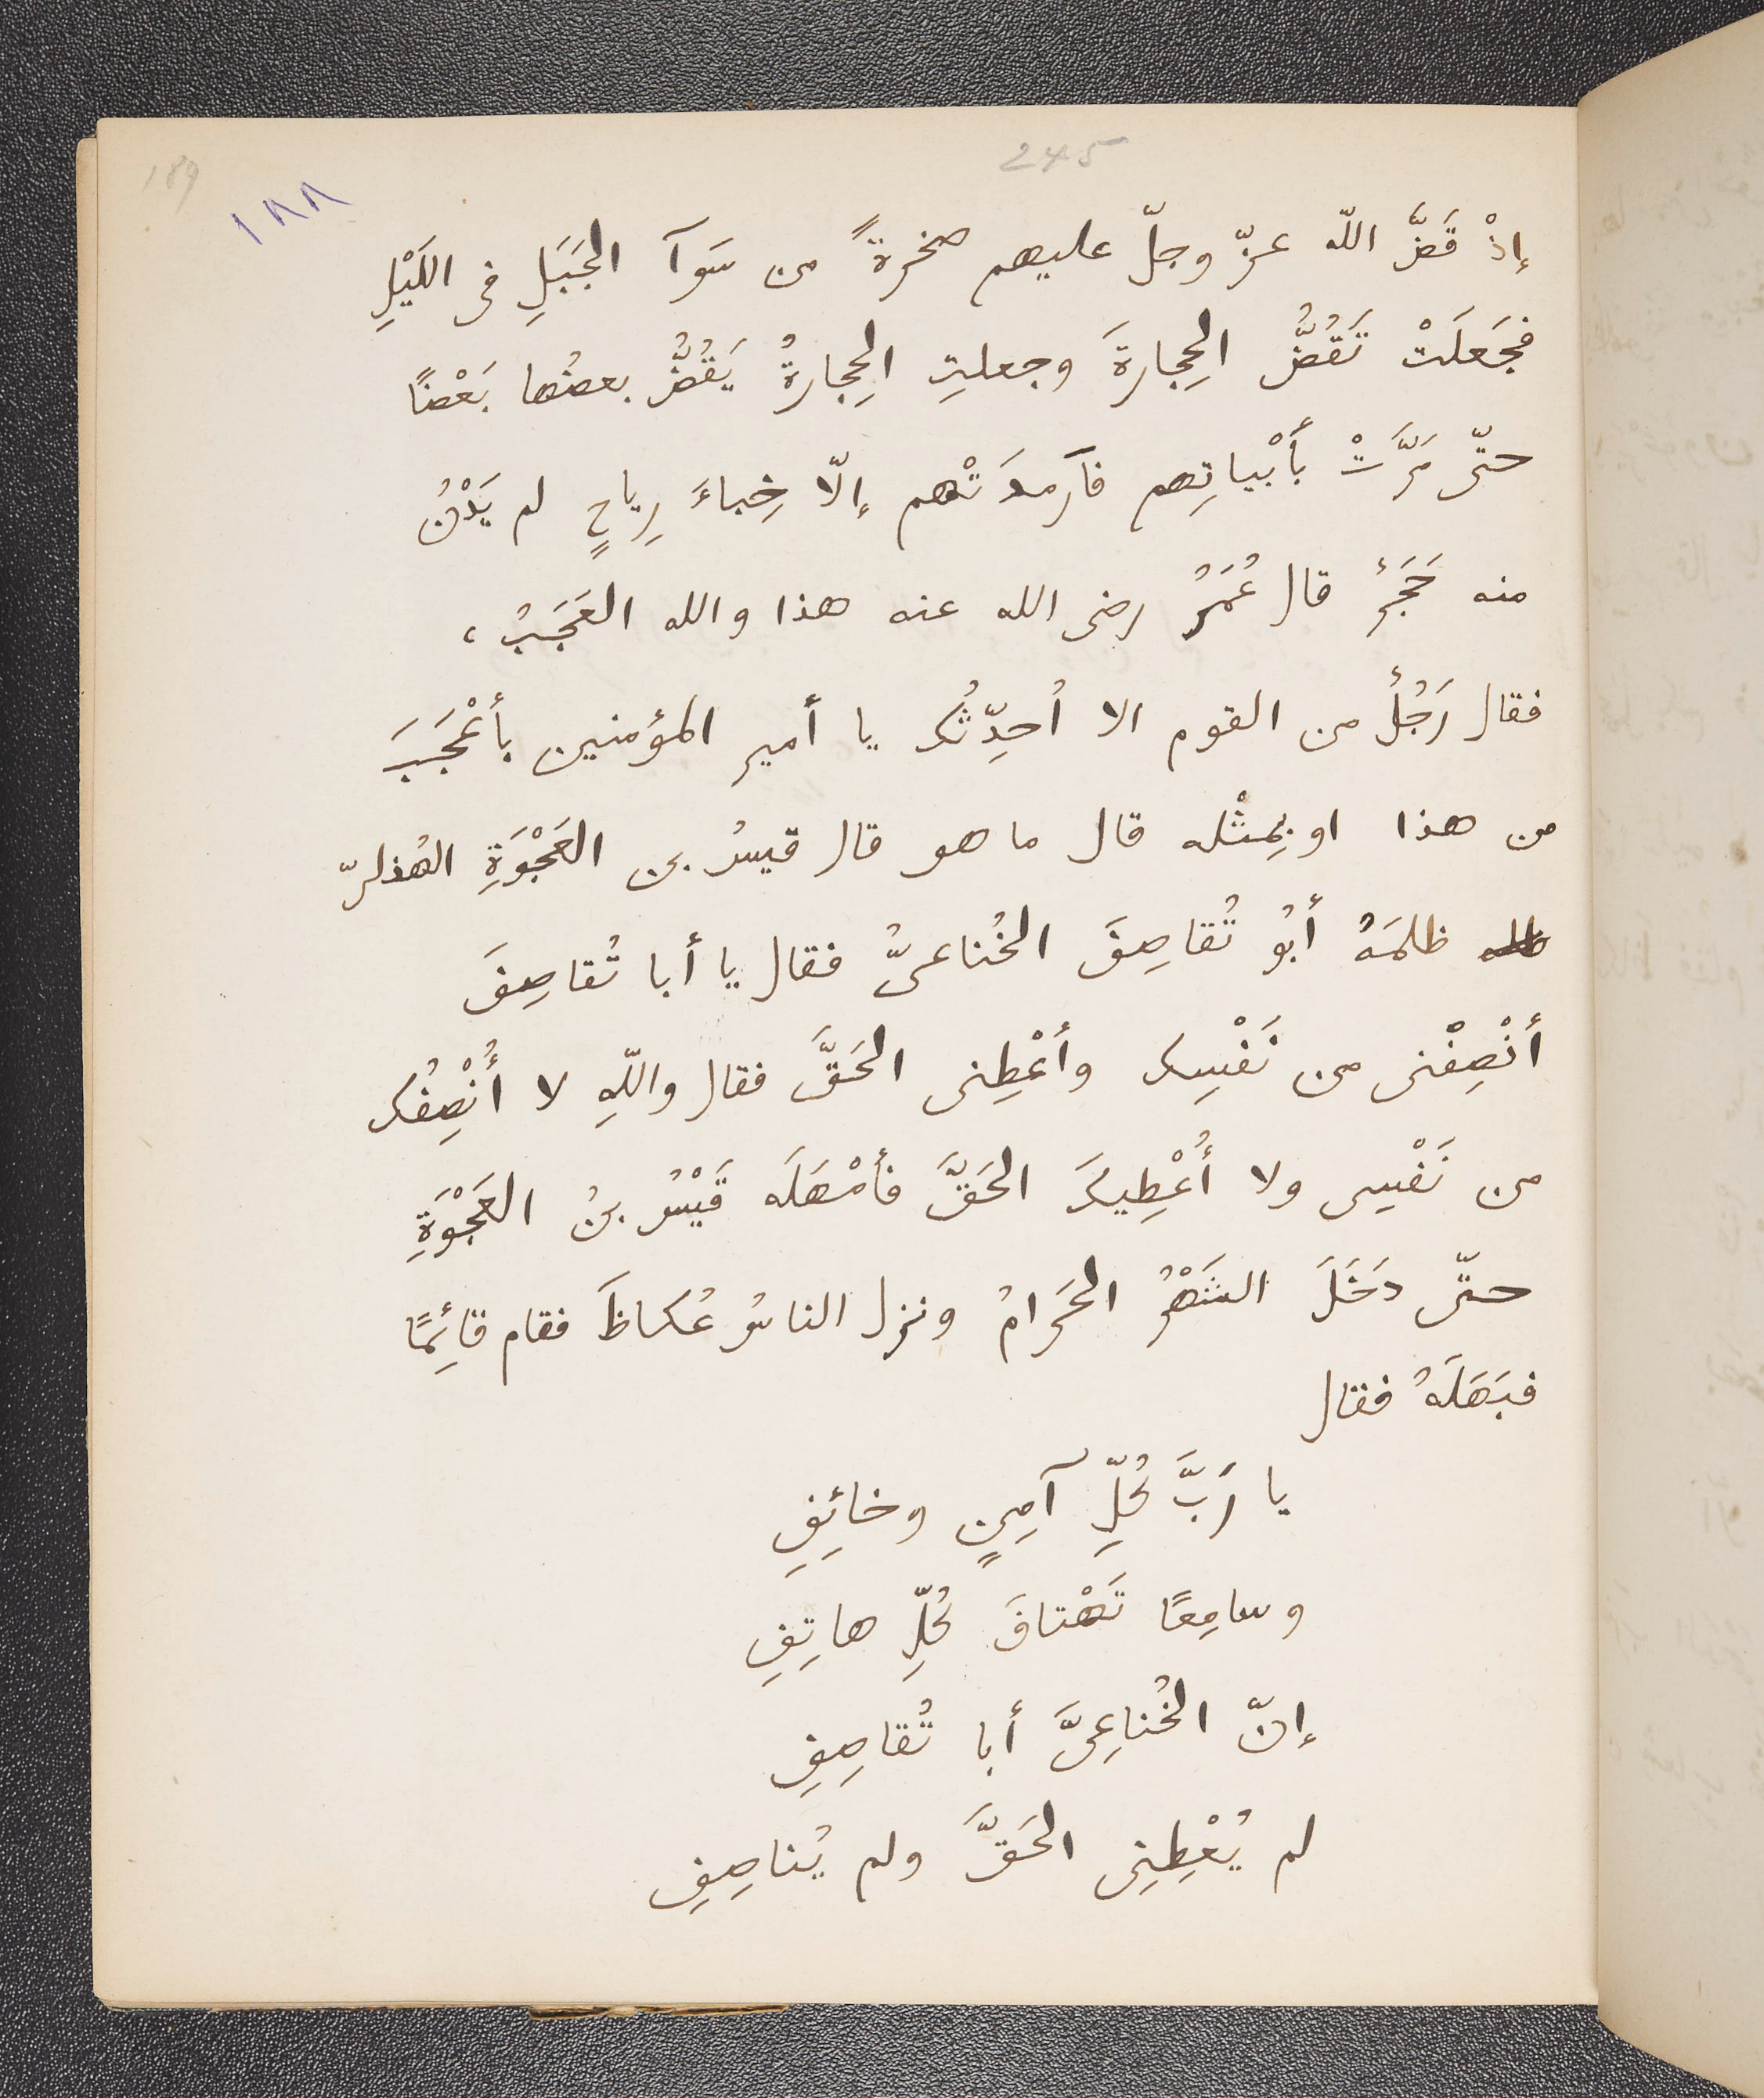 245
189
١٨٨
إذْ قَضَّ اللّه عزّ وجلّ عليهم صخرةً من سَوآ الجَبَلِ فى اللَيْلِ
فجَعَلَتْ تَقُضُّ الحِجارةَ وجعلتِ الحِجارةُ يَقُضُّ بعضُها بَعْضًا
حتّى مَرَّتْ بأَبْياتِهم فآرمدَتْهم إلّا خِباءَ رِياحٍ لم يَدْنُ
منه حَجَرٌ قال عُمَرُ رضى الله عنه هذا والله العَجَبُ ،
فقال رَجُلٌ من القوم الا اُحدِّثُك يا أمير المؤمنين بأعْجَبَ
من هذا او بمِثْله قال ما هو قال قيسُ بن العَجْوَةِ الهُذلىّ
ظلمَهُ أَبُو تُقاصِفَ الخُناعىُّ فقال يا أبا تُقاصِفَ
أنْصِفْنى من نَفْسِك وأعْطِنى الحَقَّ فقال واللّهِ لا أُنْصِفُك
من نَفْسِى ولا أُعْطِيكَ الحَقَّ فأمْهَلَه قَيْسُ بنُ العَجْوَةِ
حتّى دَخَلَ الشَهْرُ الحَرامُ ونزل الناسُ عُكاظَ فقام قائِمًا
فبَهَلَهُ فقال
يا رَبَّ كُلِّ آمِنٍ وخائِفِ
وسامِعًا تَهْتافَ كُلِّ هاتِفِ
إنّ الخُناعِىَّ أبا تُقاصِفِ
لم يُعْطِنِى الحَقَّ ولم يُناصِفِ